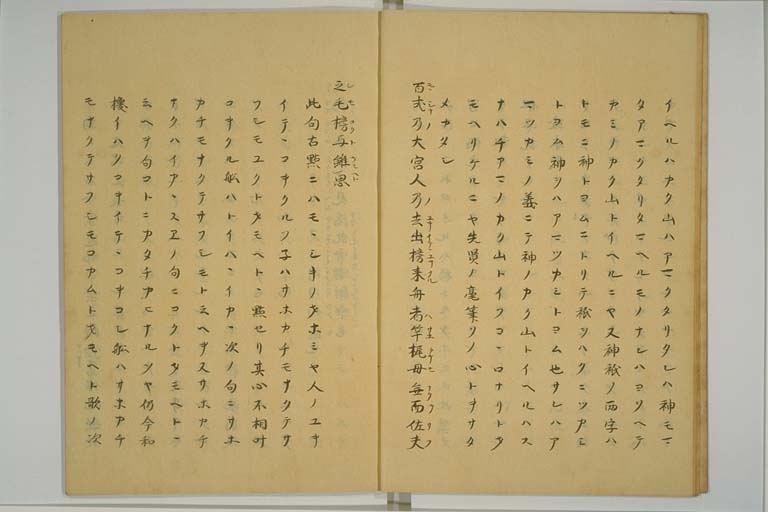 イヘルハカク山ハアマクタリタレハ神モマ
タアマクタリタマヘルモノナレハヨソヘテ
カミノカク山トイヘルニヤ又神祇ノ両字ハ
トモニ神トヨムニトリテ祇ヲハクニツカミ
トヨム神ヲハアマツカミトヨム也サレハア
マツカミノ義ニテ神ノカク山トイヘルハス
ナハチアマノカク山トイフコヽロナリトオ
モヘリケルニヤ先賢ノ毫筆ソノ心トオサタ
メカタシ
百式乃大宮人乃去出榜来舟者竿梶母無而佐夫
之毛榜与雖思
此句古點ニハモヽシキノオホミヤ人ノユキ
イテヽコキクルフ子ハサホカチモナクテサ
フシモユクトオモヘトヽ點セリ其心不相叶
コキクル舩ハトイハヽイカヽ次ノ句ニサホ
カチモナクテサフシモト云ヘキヤサホカチ
ナクハイ スヱノ句ニコクトオモヘトヽ
云ヘキ句コトニカタチカヒナルヲヤ仍今和
換イハクコキイテヽコキコシ舩ハサホカチ
モナクテサフシモコカムトオモヘト歌ノ次